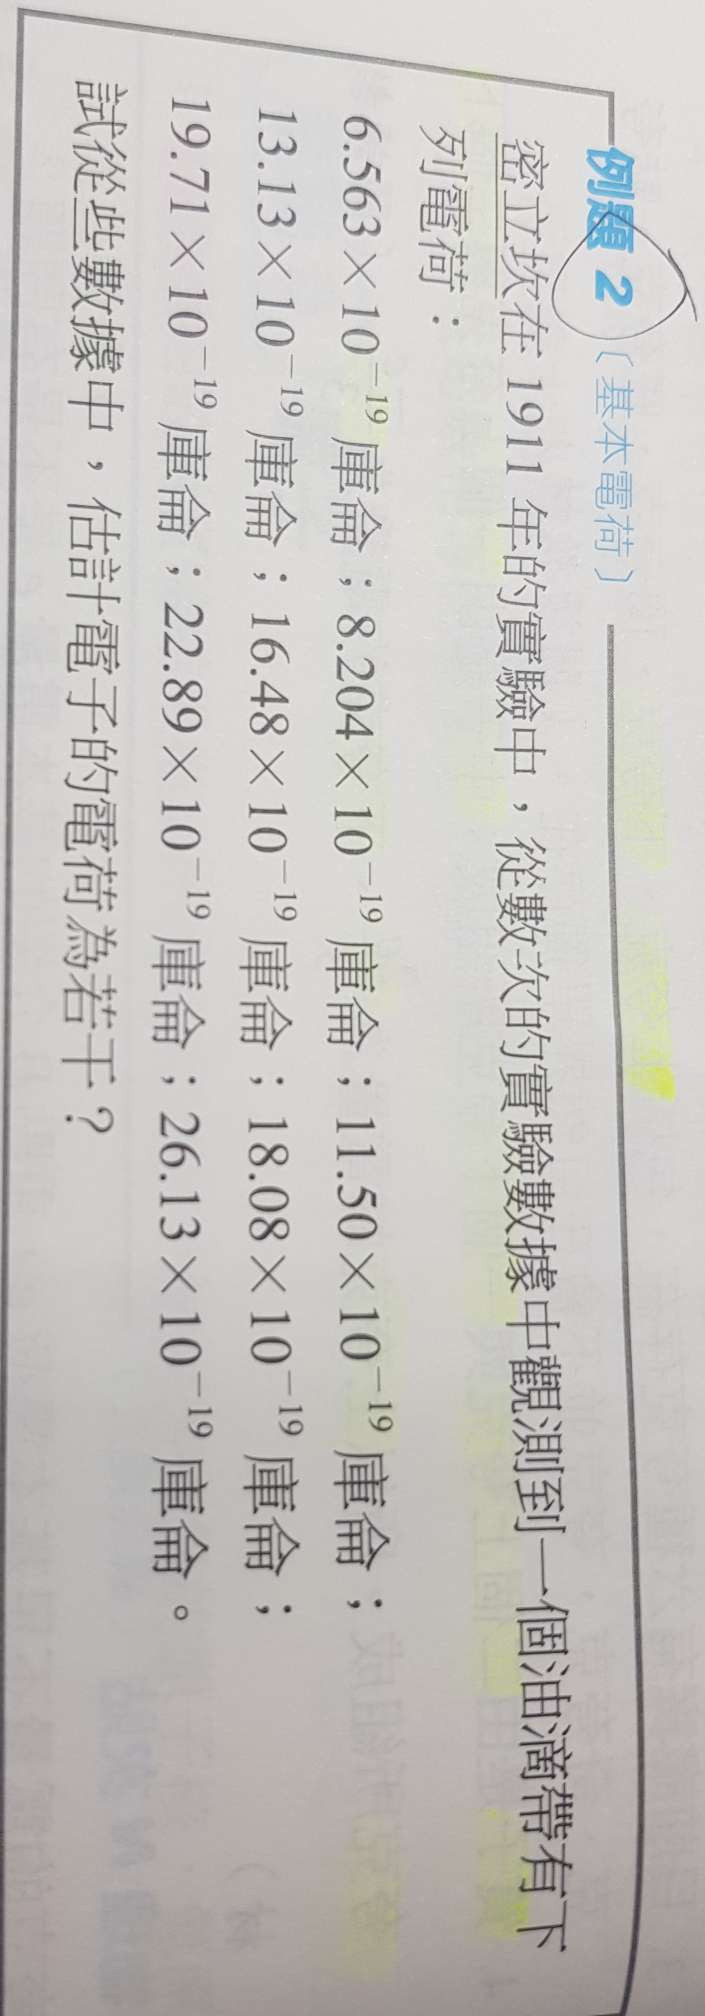 例題 2 〔基本電荷〕
密立坎在 1911 年的實驗中，從數次的實驗數據中觀測到一個油滴帶有下
列電荷：
6.563×10⁻¹⁹ 庫侖；8.204×10⁻¹⁹ 庫侖；11.50×10⁻¹⁹ 庫侖；
13.13×10⁻¹⁹ 庫侖；16.48×10⁻¹⁹ 庫侖；18.08×10⁻¹⁹ 庫侖；
19.71×10⁻¹⁹ 庫侖；22.89×10⁻¹⁹ 庫侖；26.13×10⁻¹⁹ 庫侖。
試從些數據中，估計電子的電荷為若干？